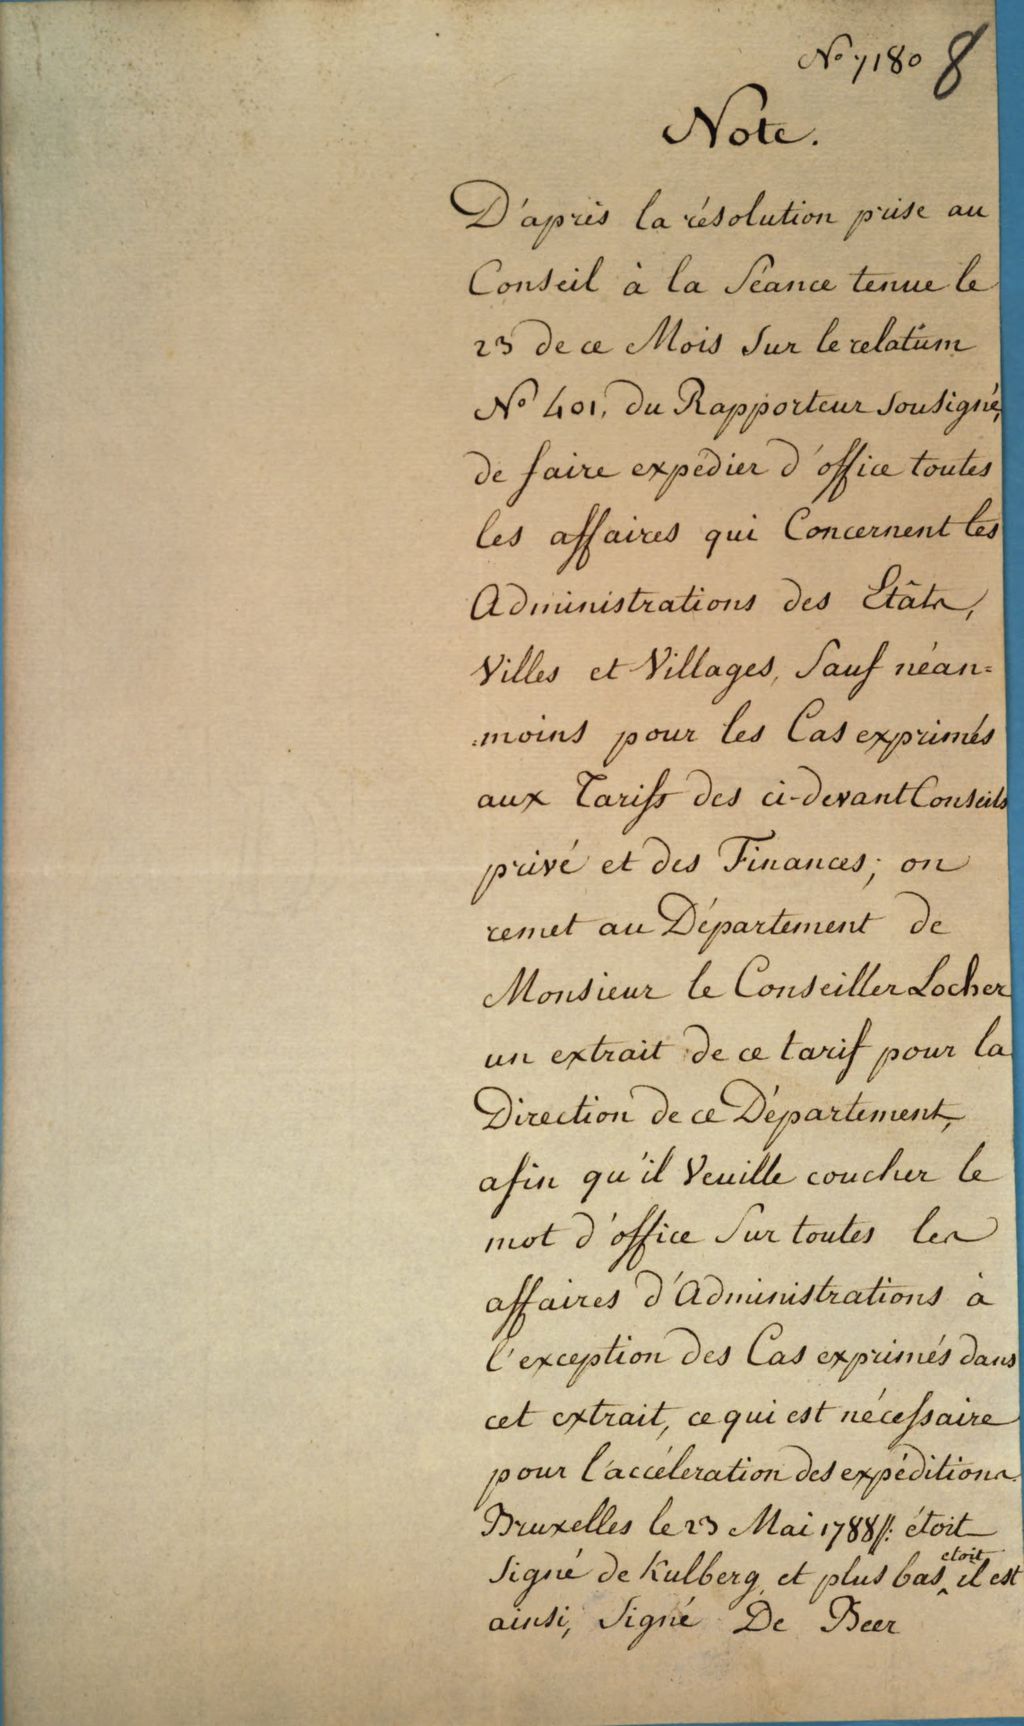 N° 7180 8
Note.
D'après la résolution prise au
Conseil à la Séance tenue le
23 de ce Mois Sur le relatum
N° 401, du Rapporteur Sousigné,
de faire expédier d'office toutes
les affaires qui Concernent les
Administrations des Etâts,
Villes et Villages, Sauf néan=
=moins pour les Cas exprimés
aux Tariffs des ci-devant Conseils
privé et des Finances; on
remet au Département de
Monsieur le Conseiller Locher
un extrait de ce tarif pour la
Direction de ce Département,
afin qu'il Veuille coucher le
mot d'office Sur toutes les
affaires d'Administrations à
l'exception des Cas exprimés dans
cet extrait, ce qui est nécessaire
pour l'accéleration des expéditions.
Bruxelles le 23 Mai 1788 //: étoit
Signé de Kulberg, et plus bas etoit il est
ainsi, Signé De Beer